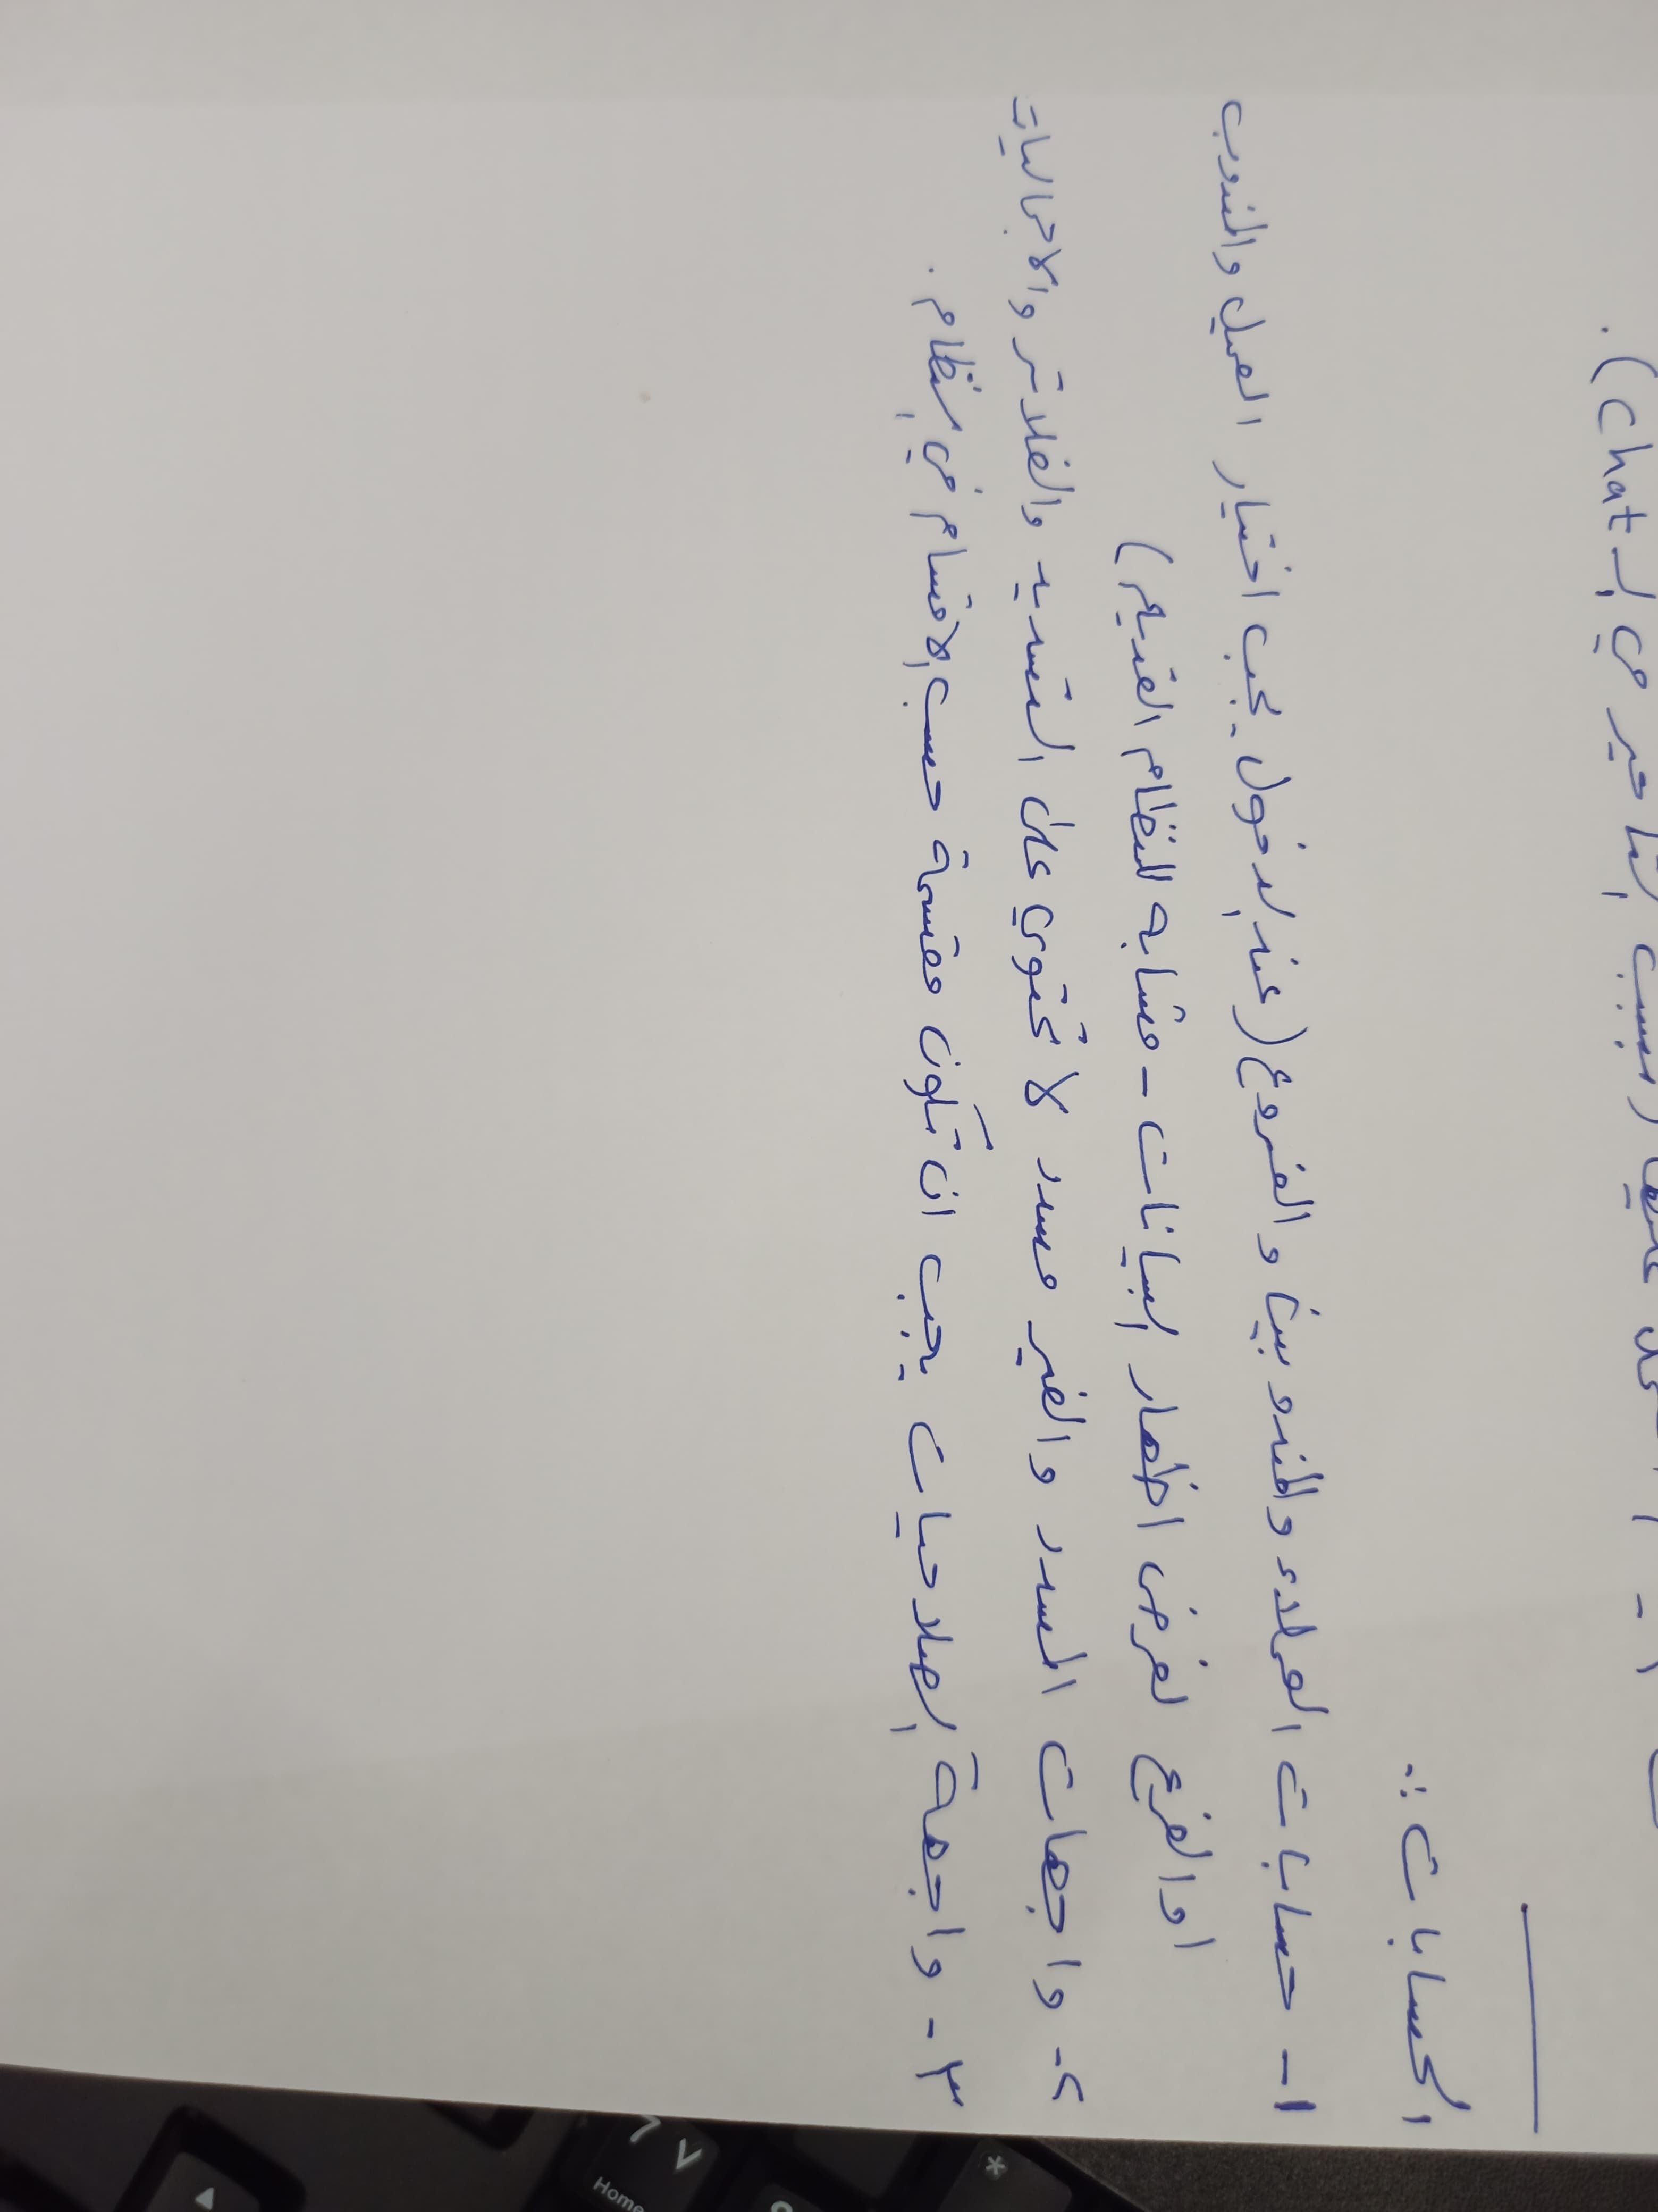 (بسبب التأخير في الـ chat).
الحسابات :.
١- حسابات العملاء والمندوبين والفروع (عند الدخول يجب اختيار العميل والمندوب
او الفرع لغرض اظهار البيانات - مشابه للنظام القديم)
٢- واجهات المسدد والغير مسدد لا تحتوي على التسديد والفلاتر والاجماليات
٣- واجهة الصلاحيات يجب ان تكون مقسمة حسب الاقسام في النظام .
*
7 ٧
Home